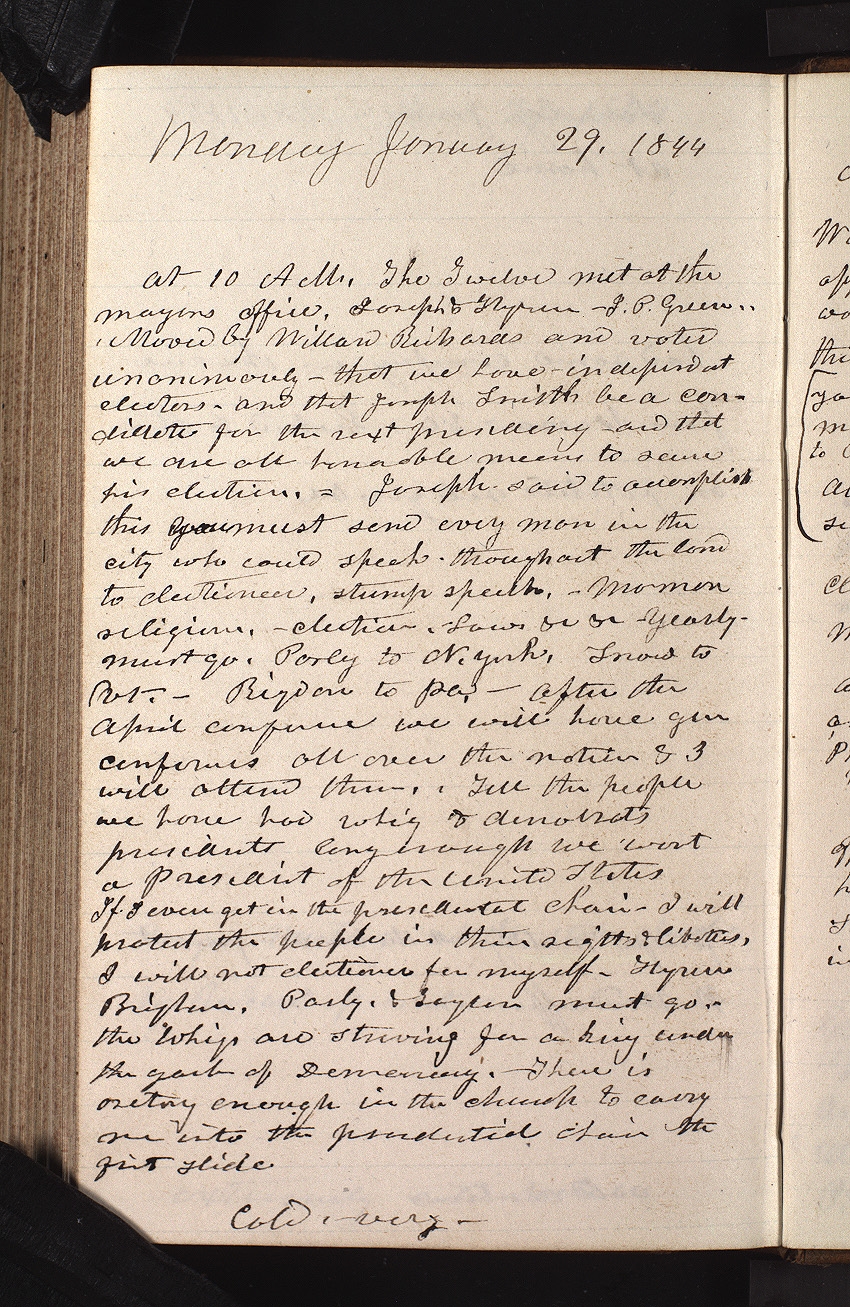 Monday January 29. 1844
at 10 A M. The Twelve met at the
mayors office, Joseph & Hyrum - J. P. Green..
Moved by Willard Richards and voted
unanimously - that we have independent
electors - and that Joseph Smith be a can-
didate for the next presidency - and that
we use all honorable means to secure
his election. = Joseph said to accomplish
this you must send every man in the
city who could speak throughout the land
to electioneer, stump speech. - Mormon
religion. - election. Laws &c &c - Yearly-
must go. Parly to N. York. Snow to
Vt. - Rigdon to Pa. - after the
April conference we will have gen
conferences all over the nation & I
will attend them. Tell the people
we have had whig & democrats
presidents long enough we want
a President of the United States
If I ever get in the presidental chair - I will
protect the people in their rights & liberties.
I will not electioneer for myself - Hyrum
Brigham. Parly. & Taylor must go.
the Whigs are striving for a king under
the garb of Democracy. - There is
oratory enough in the church to carry
me into the presidential chair the
first slide
Cold, very -